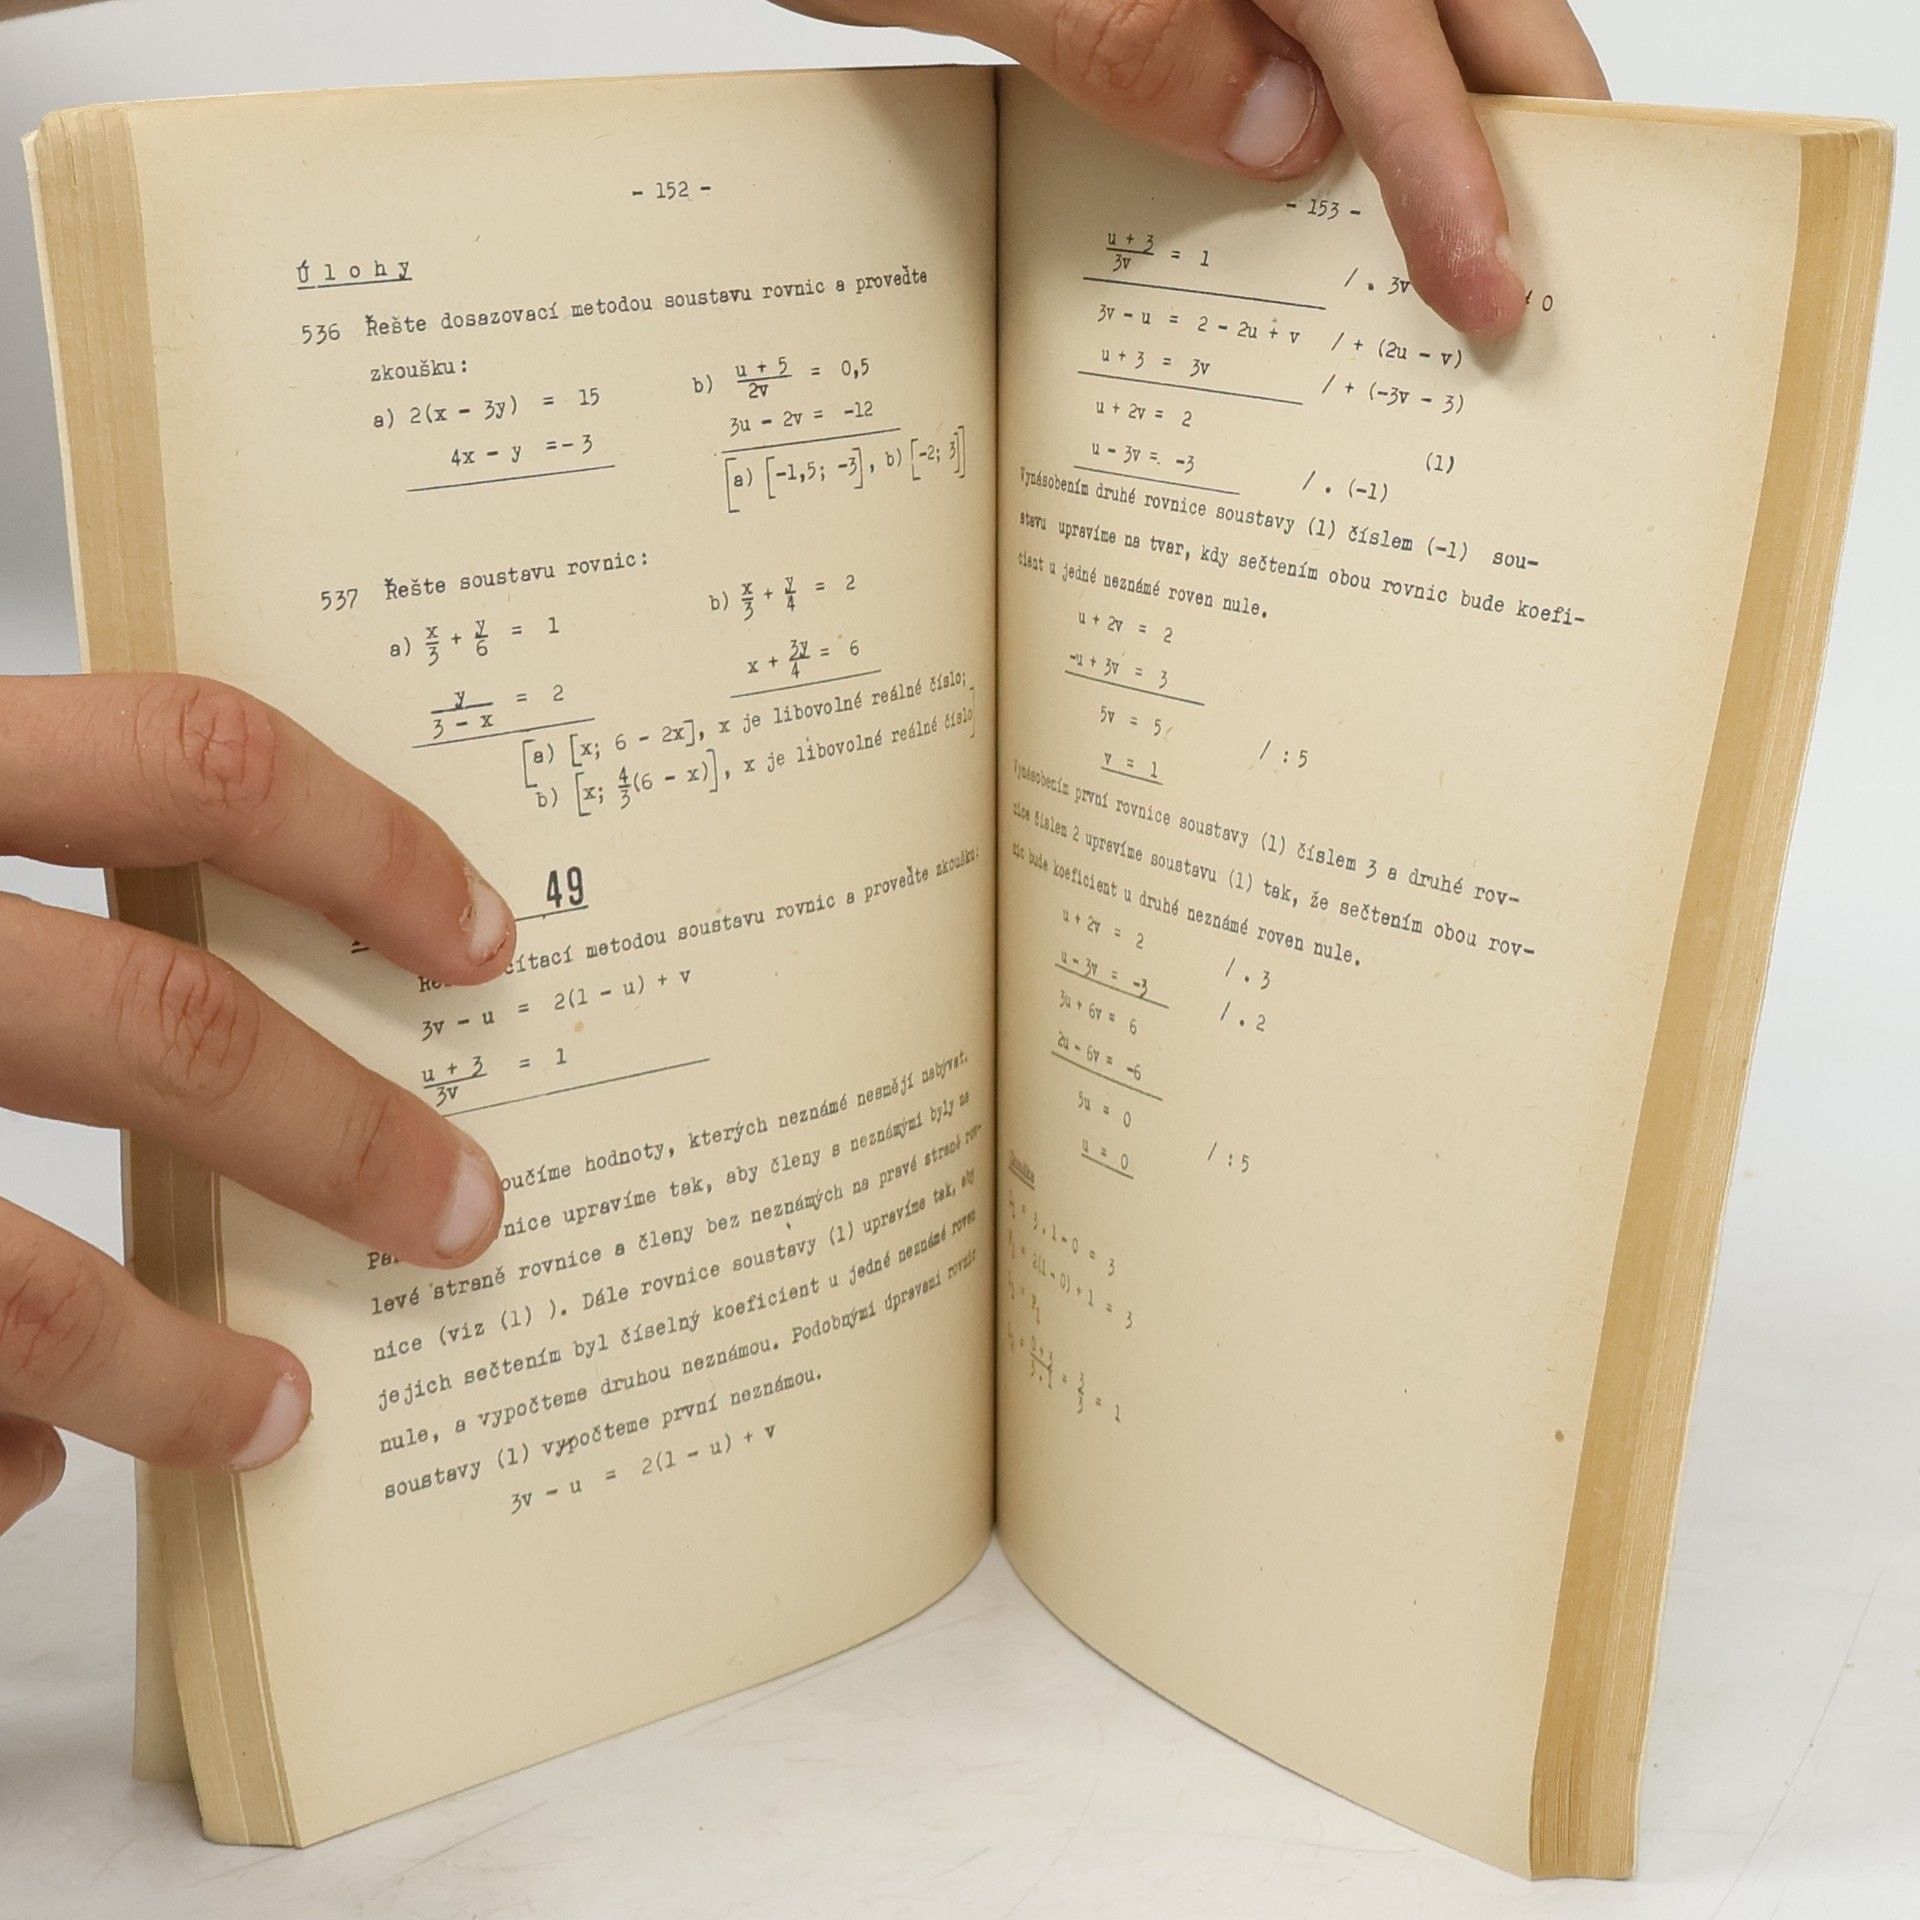 - 152 -
Úlohy
536 Řešte dosazovací metodou soustavu rovnic a proveďte
zkoušku:
a) 2(x - 3y) = 15
4x - y = - 3
b) u + 5 / 2v = 0,5
3u - 2v = -12
[a) [-1,5; -3], b) [-2; 3]]
537 Řešte soustavu rovnic:
a) x/3 + y/6 = 1
y / 3 - x = 2
b) x/3 + y/4 = 2
x + 3y/4 = 6
[a) [x; 6 - 2x], x je libovolné reálné číslo;
b) [x; 4/3(6 - x)], x je libovolné reálné číslo]
49
metodou soustavu rovnic a proveďte zkoušku:
3v - u = 2(1 - u) + v
u + 3 / 3v = 1
hodnoty, kterých neznámé nesmějí nabývat.
upravíme tak, aby členy s neznámými byly na
levé straně rovnice a členy bez neznámých na pravé straně rov-
nice (viz (1) ). Dále rovnice soustavy (1) upravíme tak, aby
jejich sečtením byl číselný koeficient u jedné neznámé roven
nule, a vypočteme druhou neznámou. Podobnými úpravami rovnic
soustavy (1) vypočteme první neznámou.
3v - u = 2(1 - u) + v
- 153 -
u + 3 / 3v = 1 / . 3v 0
3v - u = 2 - 2u + v / + (2u - v)
u + 3 = 3v / + (-3v - 3)
u + 2v = 2
(1)
u - 3v = -3 / . (-1)
Vynásobením druhé rovnice soustavy (1) číslem (-1) sou-
stavu upravíme na tvar, kdy sečtením obou rovnic bude koefi-
cient u jedné neznámé roven nule.
u + 2v = 2
-u + 3v = 3
5v = 5 / : 5
v = 1
Vynásobením první rovnice soustavy (1) číslem 3 a druhé rov-
nice číslem 2 upravíme soustavu (1) tak, že sečtením obou rov-
nic bude koeficient u druhé neznámé roven nule.
u + 2v = 2 / . 3
u - 3v = -3 / . 2
3u + 6v = 6
2u - 6v = -6
5u = 0 / : 5
u = 0
Zkouška
L1 = 3 . 1 - 0 = 3
P1 = 2(1 - 0) + 1 = 3
L1 = P1
L2 = 0 + 3 / 3 . 1 = 3/3 = 1